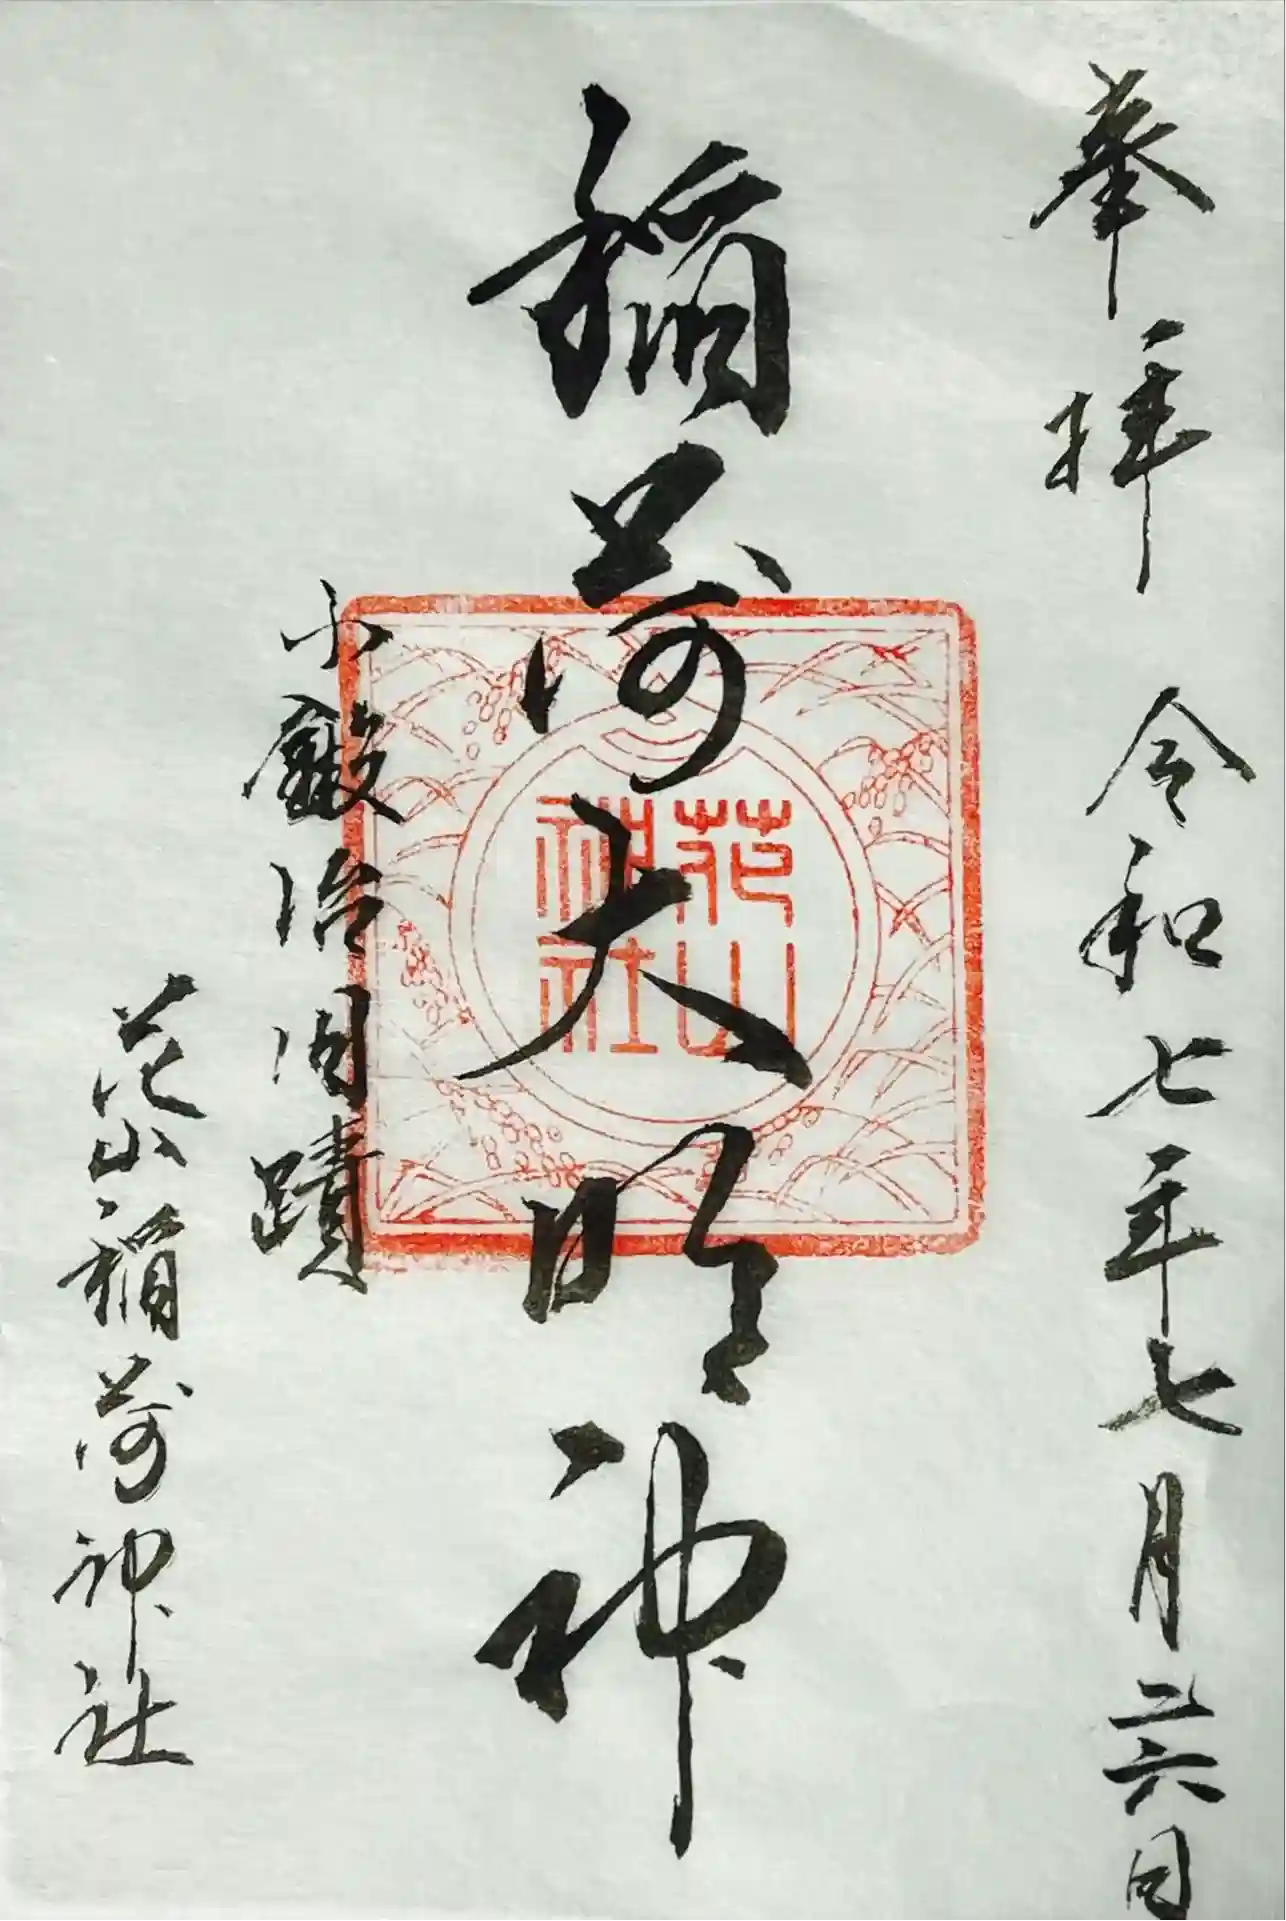 奉拝 令和七年七月二六日
稲荷大明神
花山
神社
小鍛冶旧蹟
花山稲荷神社